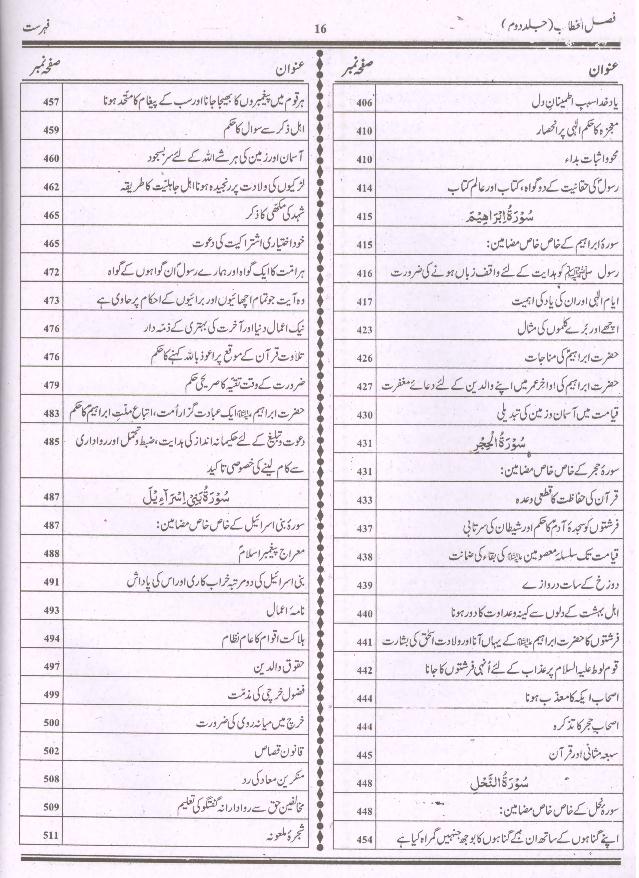 فصل الخطاب (جلد دوم) 16 فہرست
عنوان صفحہ نمبر
یاد خدا سبب اطمینان دل 406
معجزہ کا حکم الٰہی پر انحصار 410
محو و اثبات بداء 410
رسولؐ کی حقانیت کے دو گواہ، کتاب اور عالم کتاب 414
سُوۡرَۃُ اِبۡرَاہِیۡمَ 415
سورۂ ابراہیم کے خاص خاص مضامین: 415
رسول ﷺ کو ہدایت کے لئے واقف زباں ہونے کی ضرورت 416
ایام الٰہی اور ان کی یاد کی اہمیت 417
اچھے اور بُرے کلموں کی مثال 423
حضرت ابراہیمؑ کی مناجات 426
حضرت ابراہیمؑ کی اواخر عمر میں اپنے والدین کے لئے دعائے مغفرت 427
قیامت میں آسمان و زمین کی تبدیلی 430
سُوۡرَۃُ الۡحِجۡرِ 431
سورۂ حجر کے خاص خاص مضامین: 431
قرآن کی حفاظت کا قطعی وعدہ 433
فرشتوں کو سجدۂ آدمؑ کا حکم اور شیطان کی سرتابی 437
قیامت تک سلسلۂ معصومین کی بقاء کی ضمانت 438
دوزخ کے سات دروازے 439
اہل بہشت کے دلوں سے کینہ و عداوت کا دور ہونا 440
فرشتوں کا حضرت ابراہیم کے یہاں آنا اور ولادت اسحٰق کی بشارت 441
قوم لوط علیہ السلام پر عذاب کے لئے اُنہی فرشتوں کا جانا 442
اصحاب ایکہ کا معذب ہونا 444
اصحاب حجر کا تذکرہ 444
سبعہ مثانی اور قرآن 445
سُوۡرَۃُ النَّحۡلِ 448
سورۂ نحل کے خاص خاص مضامین: 448
اپنے گناہوں کے ساتھ ان کے گناہوں کا بوجھ جنہیں گمراہ کیا ہے 454
عنوان صفحہ نمبر
ہر قوم میں پیغمبروں کا بھیجا جانا اور سب کے پیغام کا متحد ہونا 457
اہل ذکر سے سوال کا حکم 459
آسمان اور زمین کی ہر شے اللہ کے لئے سربسجود 460
لڑکیوں کی ولادت پر رنجیدہ ہونا اہل جاہلیت کا طریقہ 462
شہد کی مکھی کا ذکر 465
خود اختیاری اشتراکیت کی دعوت 465
ہر امت کا ایک گواہ اور ہمارے رسولؐ ان گواہوں کے گواہ 472
وہ آیت جو تمام اچھائیوں اور برائیوں کے احکام پر حاوی ہے 473
نیک اعمال دنیا اور آخرت کی بہتری کے ذمہ دار 476
تلاوت قرآن کے موقع پر اعوذ باللہ کہنے کا حکم 476
ضرورت کے وقت تقیہ کا صریحی حکم 479
حضرت ابراہیم ایک عبادت گزار اُمت، اتباع ملّتِ ابراہیمؑ کا حکم 483
دعوت و تبلیغ کے لئے حکیمانہ انداز کی ہدایت، ضبط و تحمل اور رواداری 485
سے کام لینے کی خصوصی تاکید
سُوۡرَۃُ بَنِیۡۤ اِسۡرَآءِیۡلَ 487
سورۂ بنی اسرائیل کے خاص خاص مضامین: 487
معراج پیغمبر اسلامؐ 488
بنی اسرائیل کی دو مرتبہ خراب کاری اور اس کی پاداش 491
نامۂ اعمال 493
ہلاکت اقوام کا عام نظام 494
حقوق والدین 497
فضول خرچی کی مذمّت 499
خرچ میں میانہ روی کی ضرورت 500
قانون قصاص 502
منکرین معاد کی رد 508
مخالفین حق سے روادارانہ گفتگو کی تعلیم 509
شجرۂ ملعونہ 511